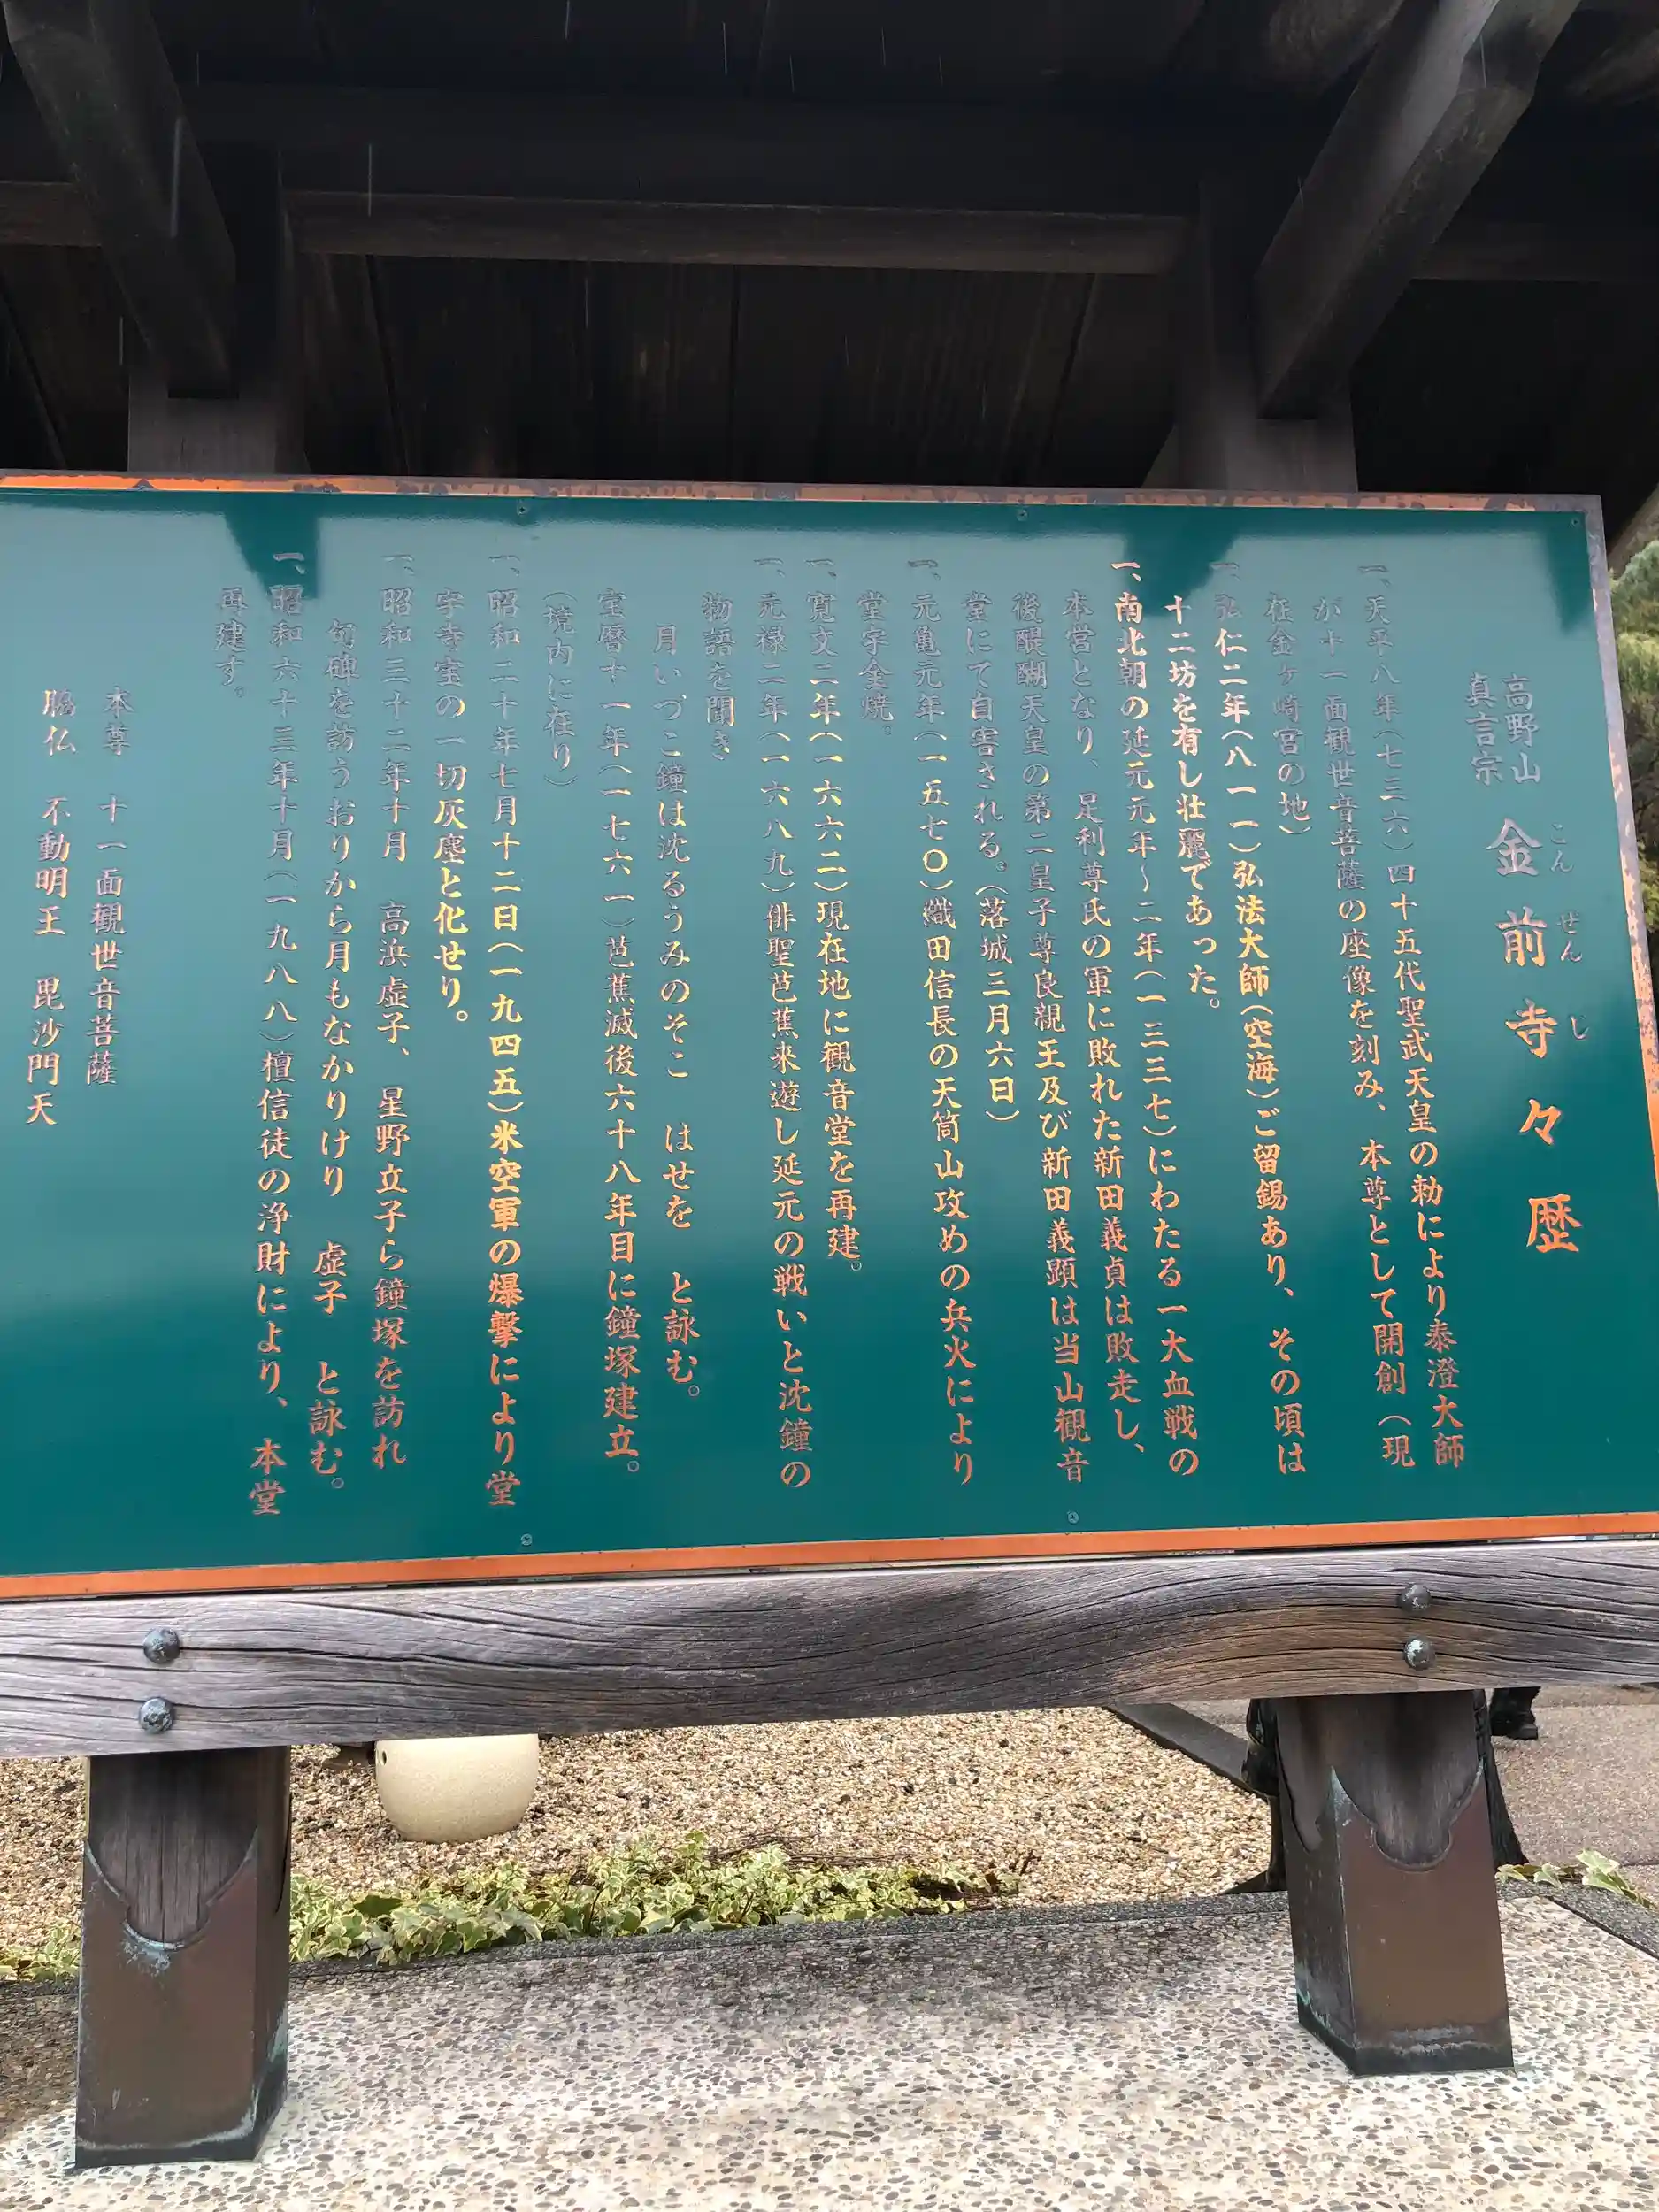 高野山
真言宗
金前寺々歴
こんぜんじ
一、天平八年(七三六)四十五代聖武天皇の勅により泰澄大師
が十一面観世音菩薩の座像を刻み、本尊として開創(現
在金ヶ崎宮の地)
一、弘仁二年(八一一)弘法大師(空海)ご留錫あり、その頃は
十二坊を有し壮麗であった。
一、南北朝の延元元年~二年(一三三七)にわたる一大血戦の
本営となり、足利尊氏の軍に敗れた新田義貞は敗走し、
後醍醐天皇の第二皇子尊良親王及び新田義顕は当山観音
堂にて自害される。(落城三月六日)
一、元亀元年(一五七〇)織田信長の天筒山攻めの兵火により
堂宇全焼。
一、寛文二年(一六六二)現在地に観音堂を再建。
一、元禄二年(一六八九)俳聖芭蕉来遊し延元の戦いと沈鐘の
物語を聞き
月いづこ鐘は沈るうみのそこ はせを と詠む。
宝暦十一年(一七六一)芭蕉滅後六十八年目に鐘塚建立。
(境内に在り)
一、昭和二十年七月十二日(一九四五)米空軍の爆撃により堂
宇寺宝の一切灰塵と化せり。
一、昭和三十二年十月 高浜虚子、星野立子ら鐘塚を訪れ
句碑を訪うおりから月もなかりけり 虚子 と詠む。
一、昭和六十三年十月(一九八八)檀信徒の浄財により、本堂
再建す。
本尊 十一面観世音菩薩
脇仏 不動明王 毘沙門天